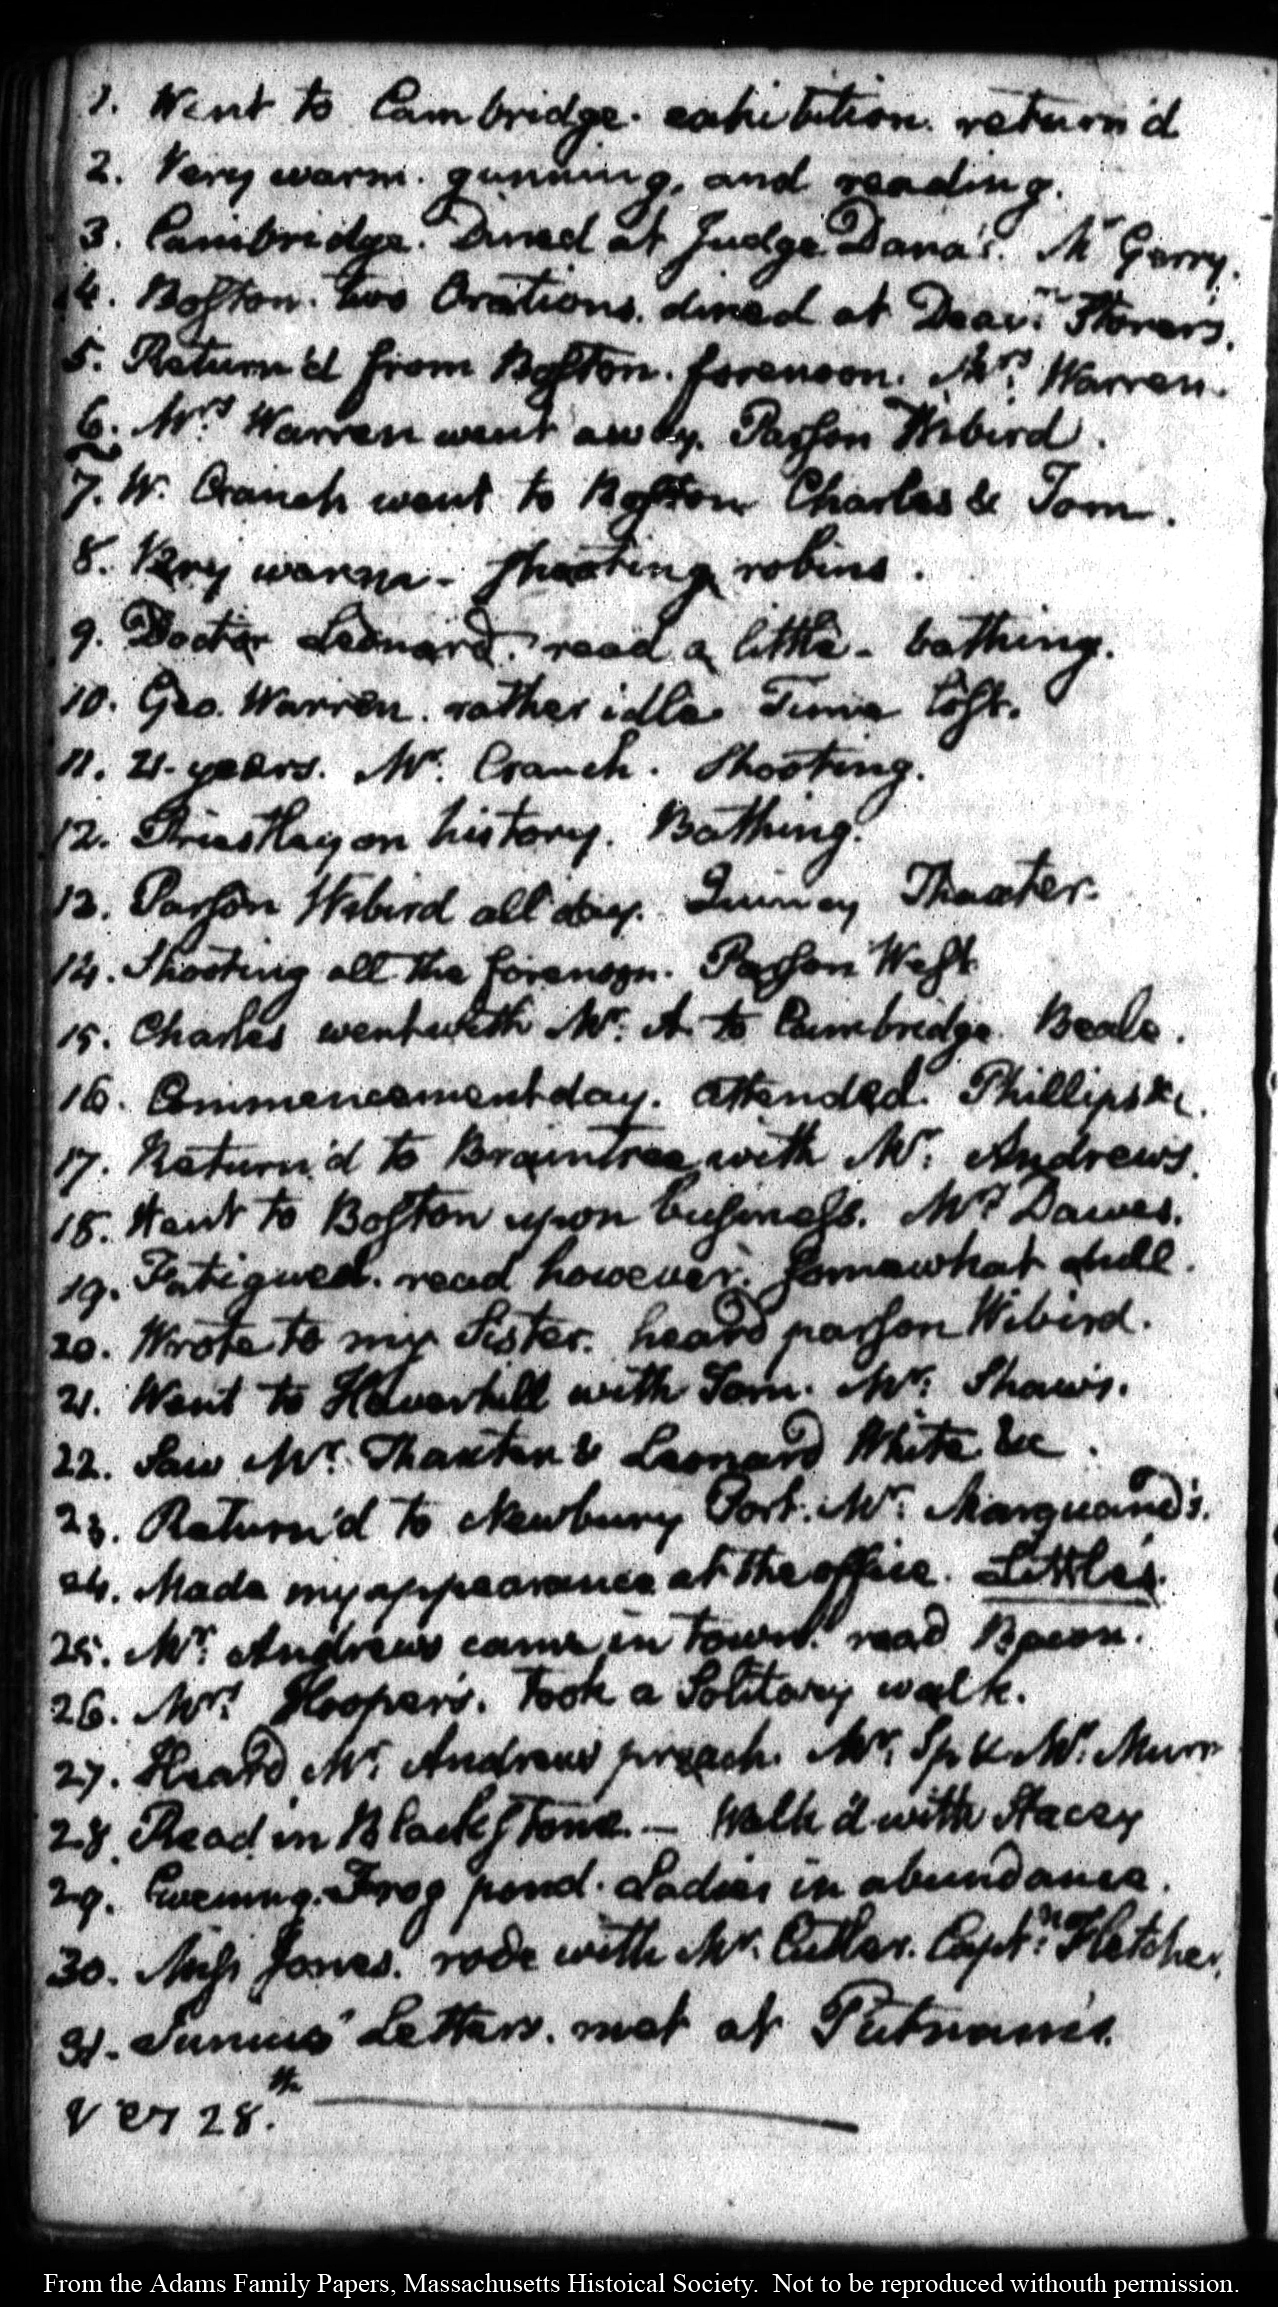 1. Went to Cambridge. exhibition. return'd
2. Very warm. gunning, and reading.
3. Cambridge. Dined at Judge Dana's. Mr Gerry.
4. Boston. two Orations. dined at Deacn. Storer's.
5. Return'd from Boston. forenoon. Mrs. Warren.
6. Mrs. Warren went away. Parson Wibird.
7. W. Cranch went to Boston Charles & Tom.
8. Very warm - shooting robins.
9. Doctor Leonard. read a little - bathing.
10. Geo. Warren. rather idle Time lost.
11. 21. years. Mr. Cranch. Shooting.
12. Priestley on history. Bathing.
13. Parson Wibird all day. Quincy Thaxter.
14. Shooting all the forenoon. Parson West
15. Charles went with Mr. A. to Cambridge. Beale.
16. Commencement day. attended. Phillips &c.
17. Return'd to Braintree with Mr. Andrews.
18. Went to Boston upon business. Mrs Dawes.
19. Fatigued. read however. somewhat dull.
20. Wrote to my Sister. heard parson Wibird.
21. Went to Haverhill with Tom. Mr. Shaw's.
22. Saw Mr. Thaxter & Leonard White &c.
23. Return'd to Newbury Port. Mr. Marquand's.
24. Made my appearance at the office. Little's.
25. Mr. Andrews came in town. read Bacon.
26. Mrs. Hooper's. Took a Solitary walk.
27. Heard Mr. Andrews preach. Mr. Sp & Mr. Murr
28. Read in Blackstone. — Walk'd with Stacey
29. Evening. Frog pond. Ladies in abundance.
30. Miss Jones. rode with Mr. Cutler. Captn. Fletcher.
31. Junius' Letters. met at Putnam's.
28.th
From the Adams Family Papers, Massachusetts Histoical Society. Not to be reproduced withouth permission.